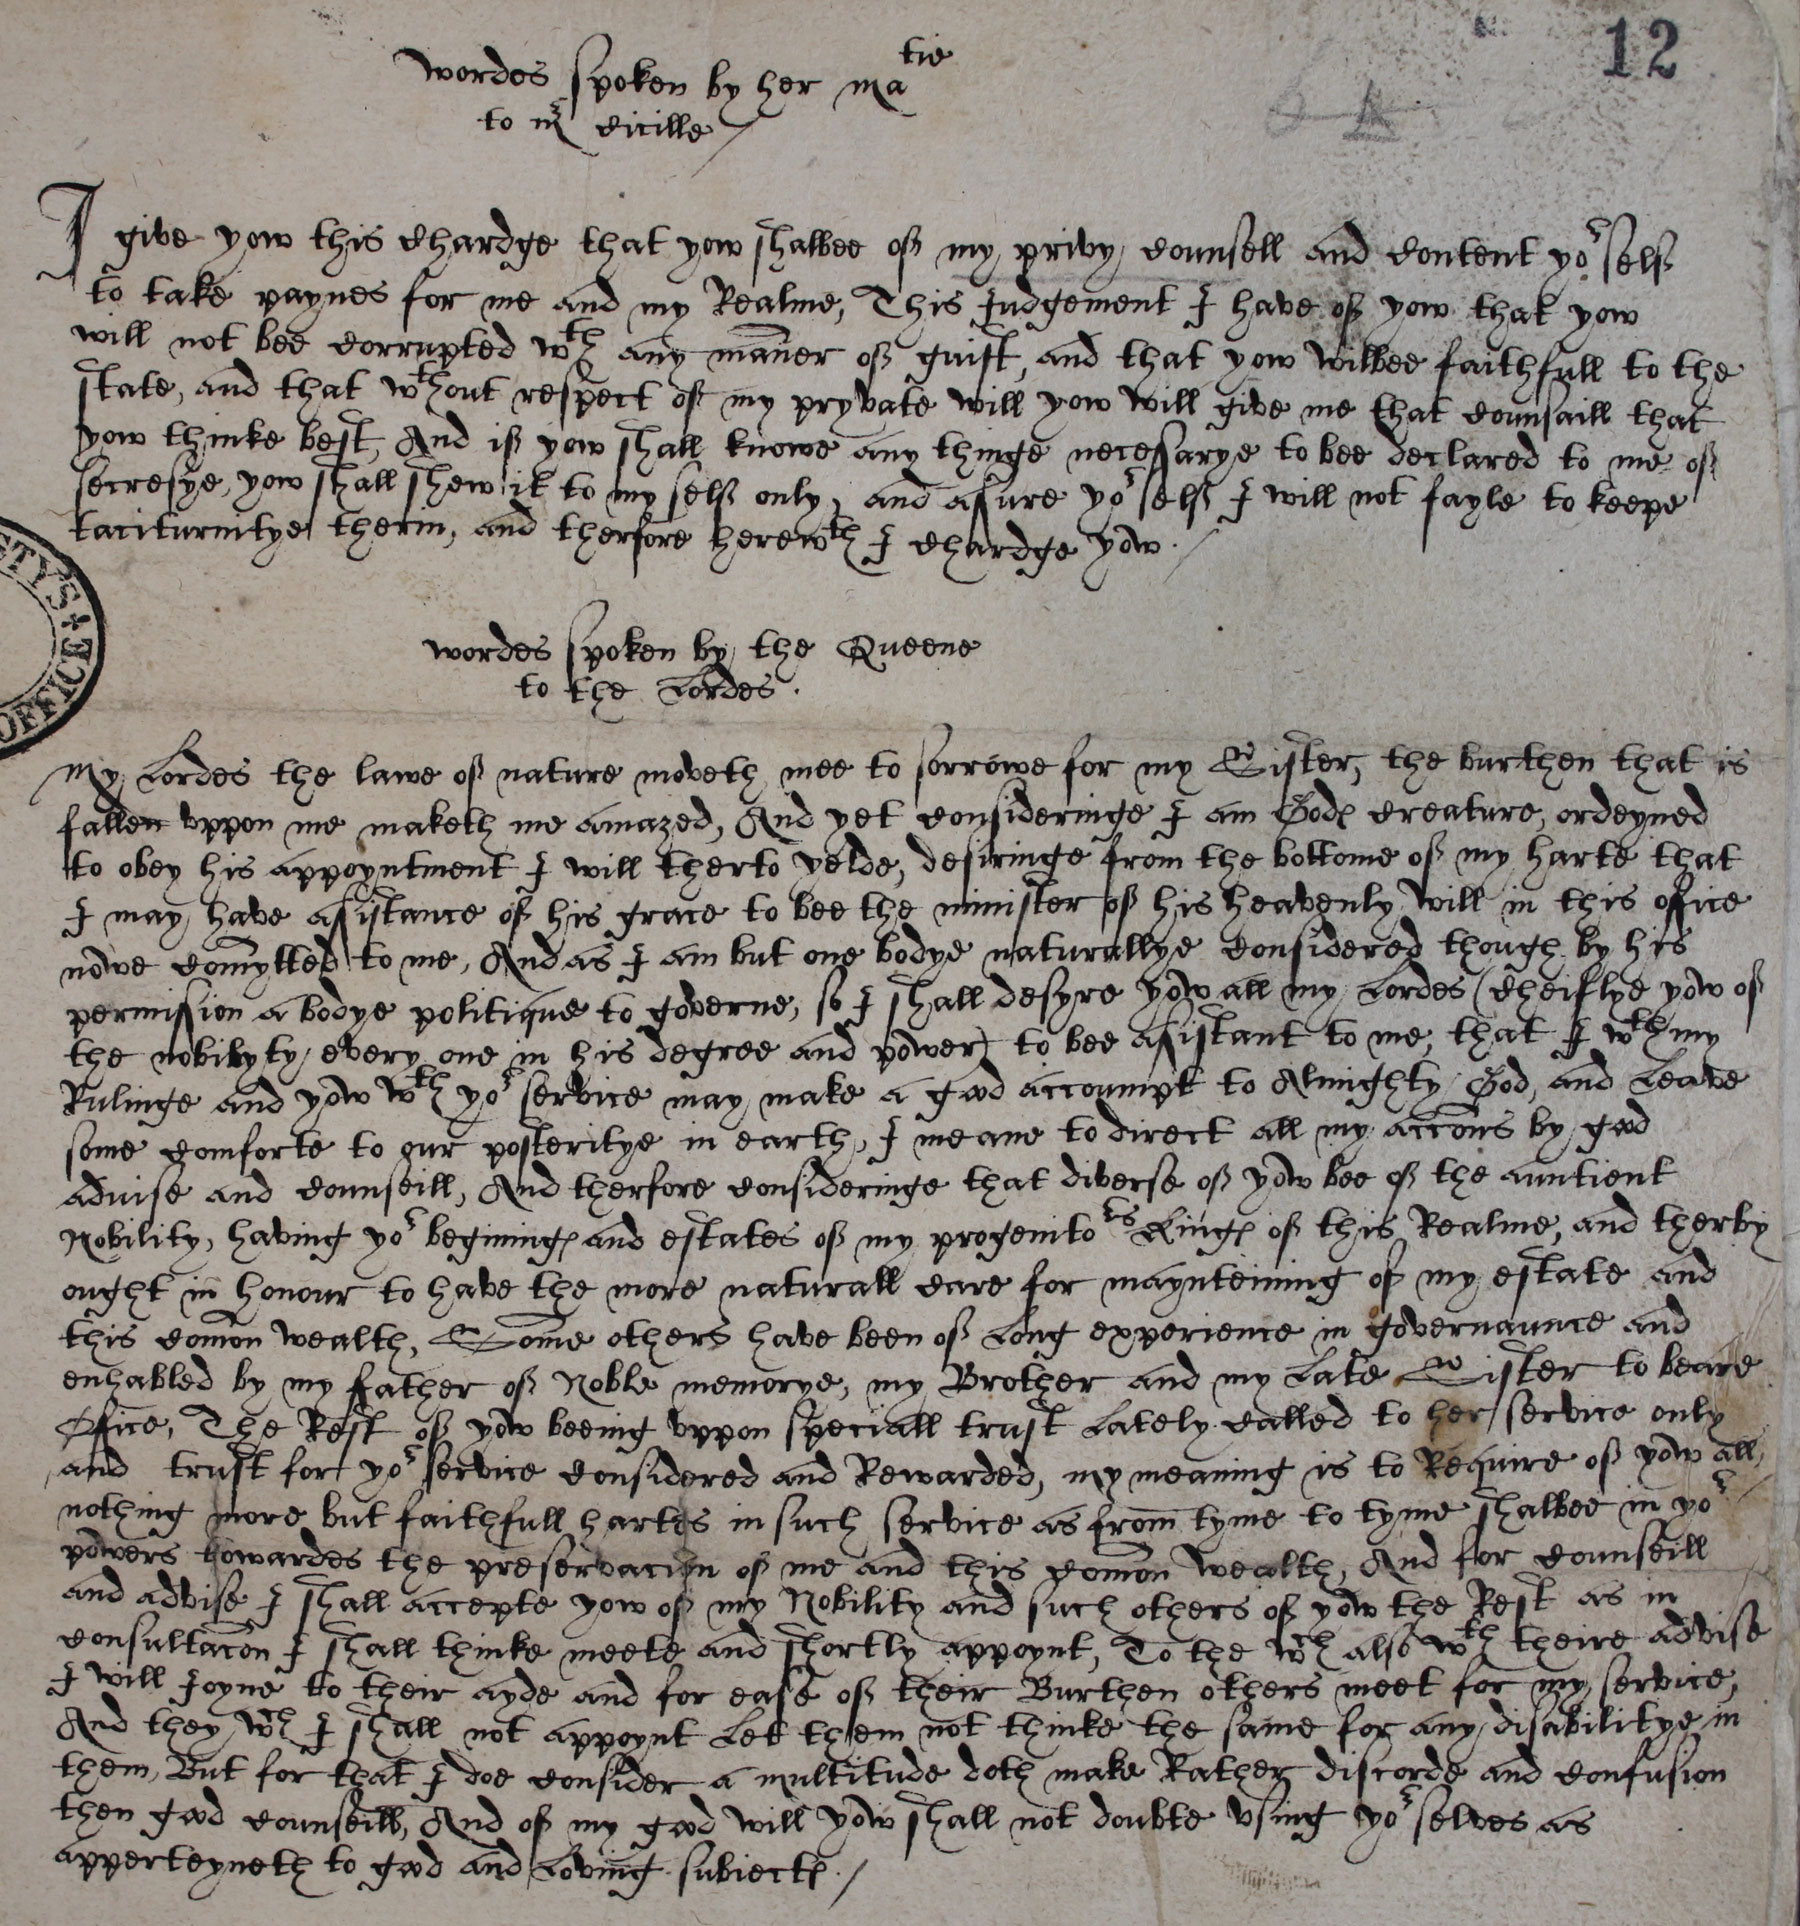 12
wordes spoken by her Ma^tie
to Mr Cicille
I give yow this chardge that yow shalbee of my privy counsell and content yo^r self
to take paynes for me and my Realme, This Judgement I have of yow that yow
will not bee corrupted w^th any man̄er of guift, and that yow wilbee faithfull to the
state, and that w^thout respect of my pryvate will yow will give me that counsaill that
yow thinke best, And if yow shall knowe any thinge necessarye to bee declared to me of
secresye, yow shall shew it to my self only, and assure yo^r self I will not fayle to keepe
taciturnitye therin, and therfore herew^th I chardge yow./
ETY'S
OFFICE
wordes spoken by the Queene
to the Lordes.
My Lordes the lawe of nature moveth mee to sorrowe for my Sister, the burthen that is
fallen vppon me maketh me amazed, And yet consideringe I am Godes creature, ordeyned
to obey his appoyntment I will therto yelde, desiringe from the bottome of my harte that
I may have assistance of his grace to bee the minister of his heavenly will in this office
nowe com̄ytted to me, And as I am but one bodye naturallye considered though by his
permission a bodye politique to governe, so I shall desyre yow all my Lordes (cheiflye yow of
the nobilyty every one in his degree and power) to bee assistant to me, that I w^th my
Rulinge and yow w^th yo^r service may make a good accoumpt to Almighty God, and Leave
some comforte to our posteritye in earth, I meane to direct all my acc̄ons by good
aduise and counseill, And therfore consideringe that diverse of yow bee of the auntient
Nobility, having yo^r beginninges and estates of my progenito^rs Kinges of this Realme, and therby
ought in honour to have the more naturall care for maynteining of my estate and
this com̄on wealth, Som̄e others have been of Long experience in governaunce and
enhabled by my father of Noble memorye, my Brother and my Late Sister to beare
Office, The Rest of yow beeing vppon speciall trust Lately called to her service only
and trust for yo^r service considered and Rewarded, my meaning is to Require of yow all
nothing more but faithfull hartes in such service as from̄ tyme to tyme shalbee in yo^r
powers towardes the preservacion of me and this com̄on wealth, And for counseill
and advise I shall accepte yow of my Nobility and such others of yow the Rest as in
consultac̄on I shall thinke meete and shortly appoynt, To the w^ch also w^th theire advise
I will Joyne to their ayde and for ease of their Burthen others meet for my service,
And they w^ch I shall not appoynt Let them not thinke the same for any disabilitye in
them, But for that I doe consider a multitude doth make Rather discorde and confusion
then good counseill, And of my good will yow shall not doubte vsing yo^r selves as
apperteyneth to good and Loving subiectes./